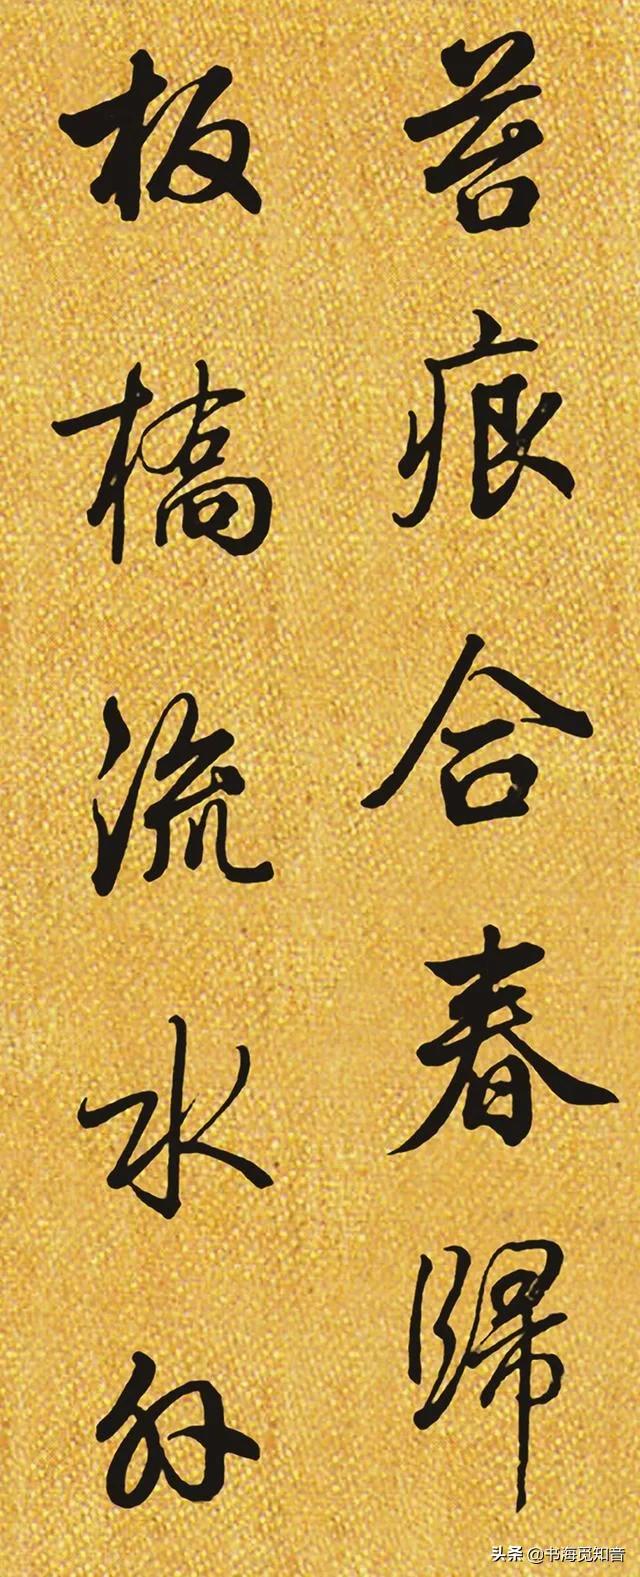 苔痕合春歸
板橋流水
头条 @书海觅知音